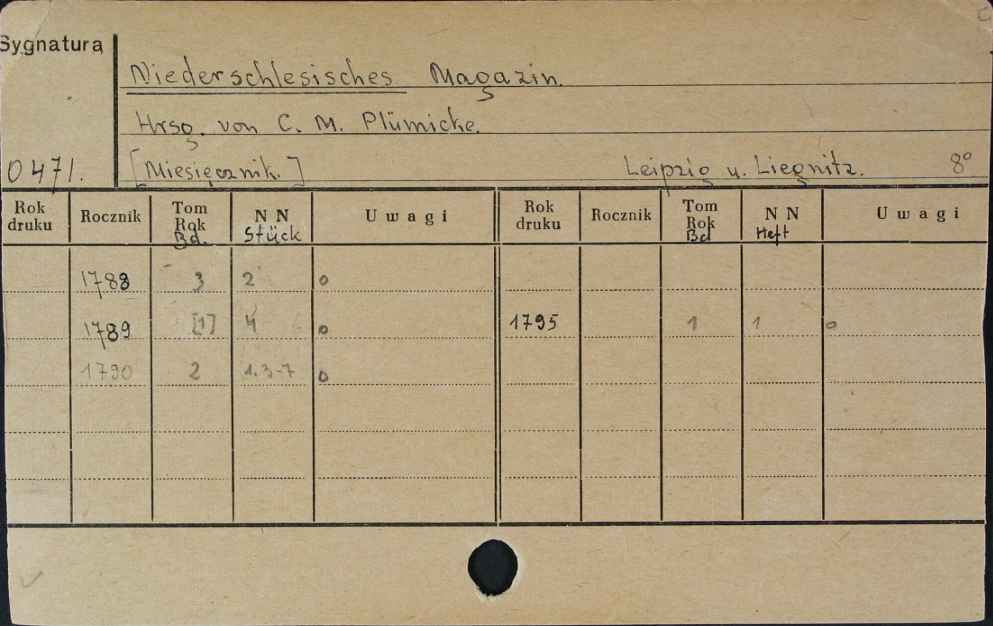 Sygnatura
Niederschlesisches Magazin.
Hrsg. von C. M. Plümicke.
0471. [Miesięcznik.] Leipzig u. Liegnitz. 8°
Rok druku Rocznik Tom Rok Bd. NN Stück Uwagi Rok druku Rocznik Tom Rok Bd NN Heft Uwagi
1788 3 2 o
1789 [1] 4 o 1795 1 1 o
1790 2 1.3-7 o